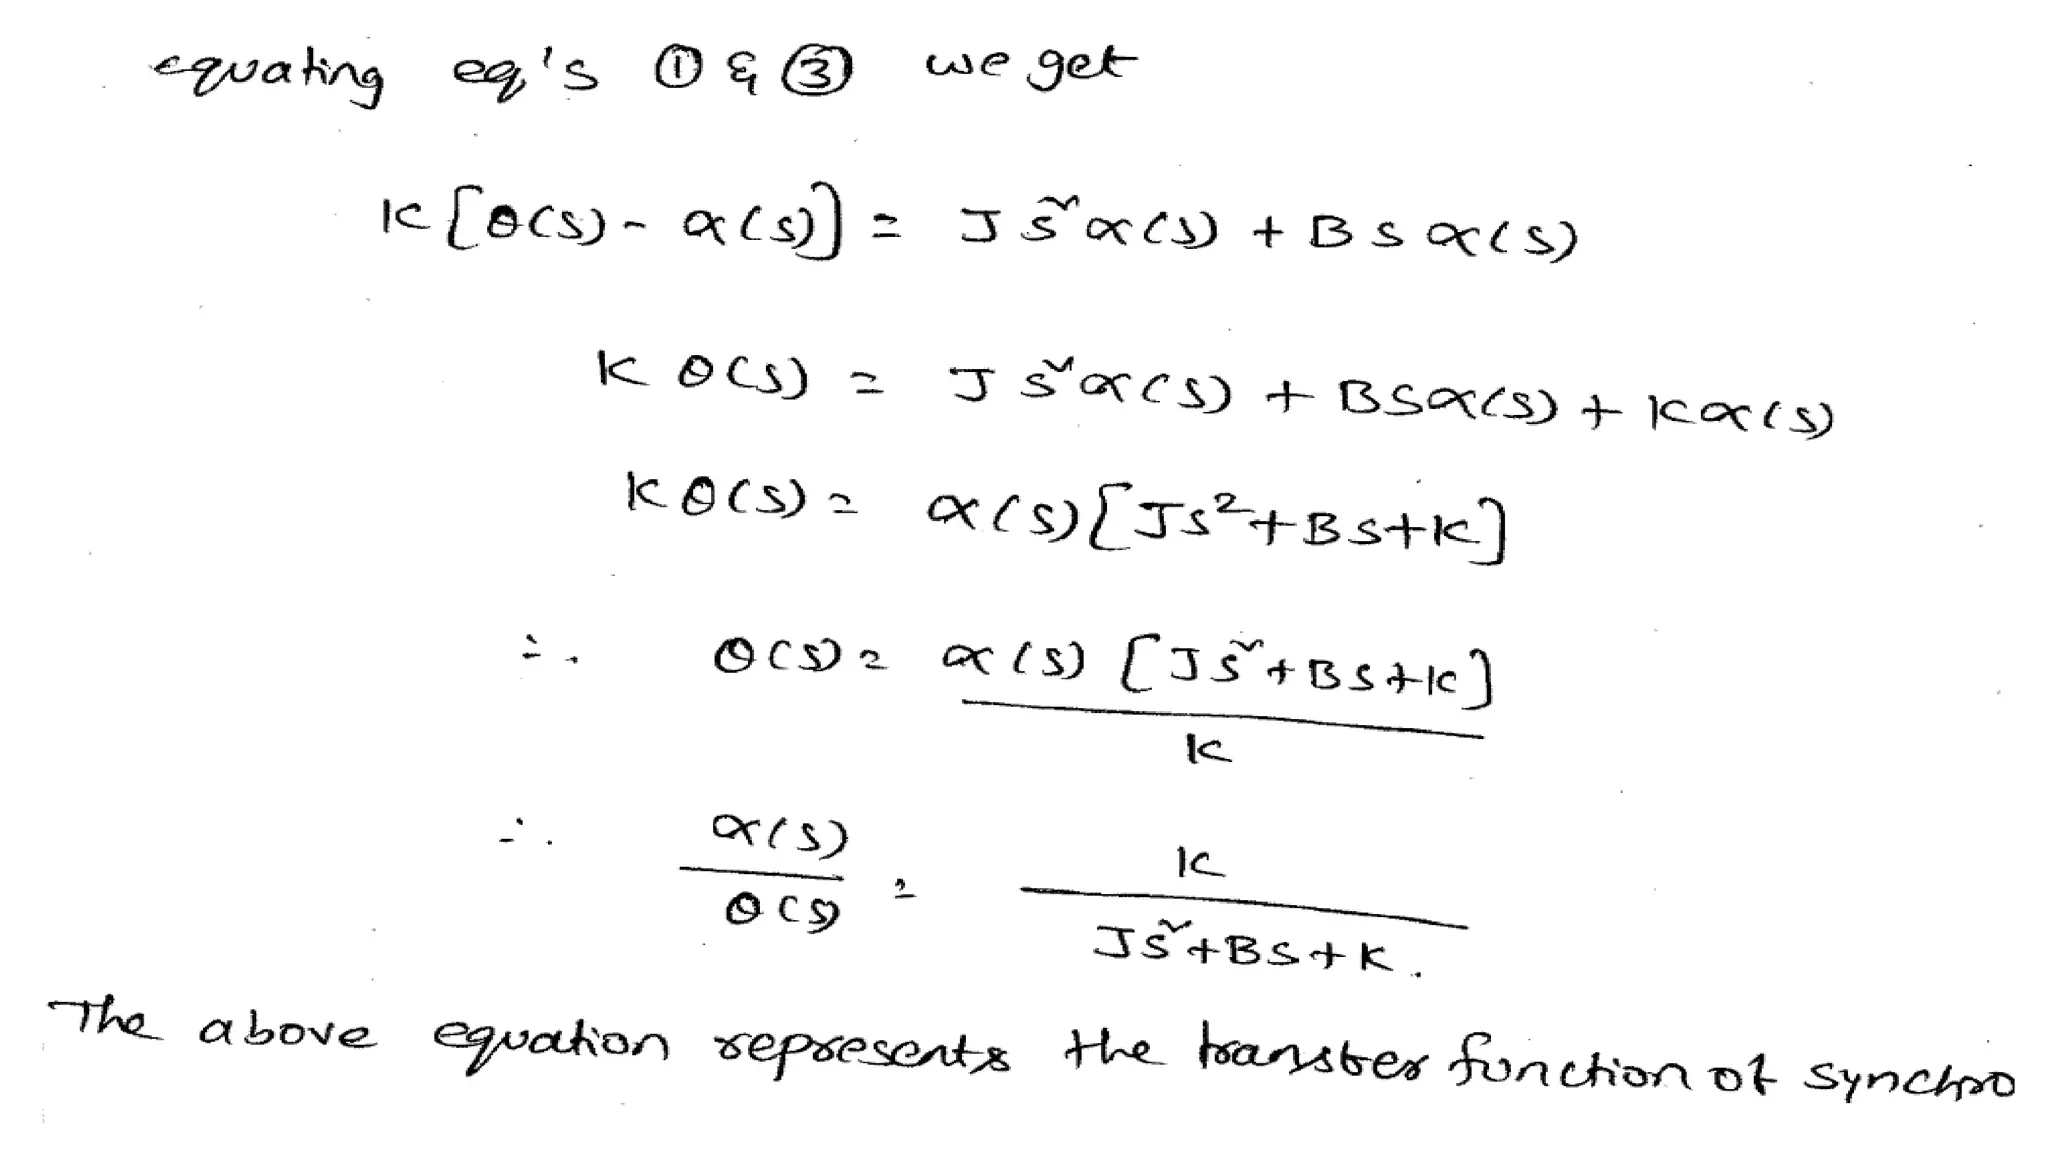 equating eq's ① & ③ we get
K[θ(s) - α(s)] = Js²α(s) + Bsα(s)
Kθ(s) = Js²α(s) + Bsα(s) + Kα(s)
Kθ(s) = α(s)[Js²+Bs+K]
∴ θ(s) = α(s) [Js²+Bs+K]
K
∴ α(s) = K
θ(s) Js²+Bs+K.
The above equation represents the transfer function of synchro